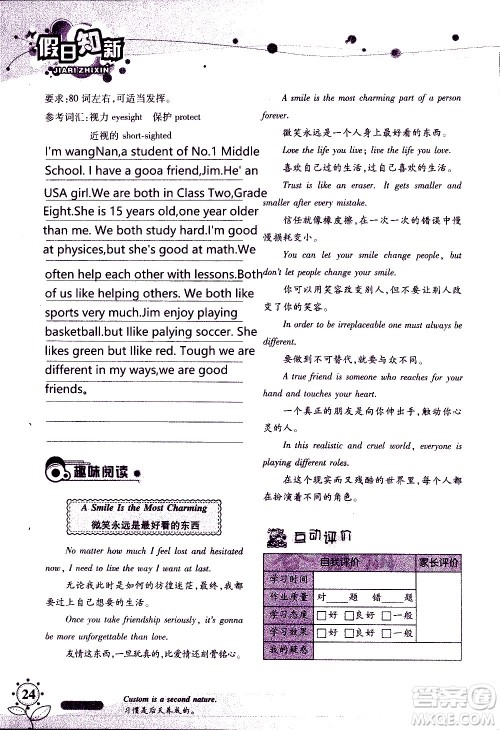 假日知新
JIARI ZHIXIN
要求:80词左右,可适当发挥。
参考词汇:视力 eyesight 保护 protect
近视的 short-sighted
I'm wangNan,a student of No.1 Middle
School. I have a gooa friend,Jim.He' an
USA girl.We are both in Class Two,Grade
Eight.She is 15 years old,one year older
than me. We both study hard.I'm good
at physics,but she's good at math.We
often help each other with lessons.Both
of us like helping others. We both like
sports very much.Jim enjoy playing
basketball.but Ilike palying soccer. She
likes green but Ilike red. Tough we are
different in my ways,we are good
friends。
趣味阅读
A Smile Is the Most Charming
微笑永远是最好看的东西
No matter how much I feel lost and hesitated
now, I need to live the way I want at last.
无论我此时如何的彷徨迷茫,最终,我都要
过上我想要的生活。
Once you take friendship seriously, it's gonna
be more unforgettable than love.
友情这东西,一旦玩真的,比爱情还刻骨铭心。
A smile is the most charming part of a person
forever.
微笑永远是一个人身上最好看的东西。
Love the life you live; live the life you love.
喜欢自己的生活,过自己喜欢的生活。
Trust is like an eraser. It gets smaller and
smaller after every mistake.
信任就像橡皮擦,在一次一次的错误中慢
慢损耗变小。
You can let your smile change people, but
don't let people change your smile.
你可以用笑容改变别人,但不要让别人改
变了你的笑容。
In order to be irreplaceable one must always be
different.
要做到不可替代,就要与众不同。
A true friend is someone who reaches for your
hand and touches your heart.
一个真正的朋友是向你伸出手,触碰你心
灵的人。
In this realistic and cruel world, everyone is
playing different roles.
在这个现实而又残酷的世界里,每个人都
在扮演着不同的角色。
互动评价
自我评价 家长评价
学习时间
作业质量 对 题 错 题
学习态度 □好 □良好 □一般
学习效果 □好 □良好 □一般
我的疑惑
24
Custom is a second nature.
习惯是后天养成的。